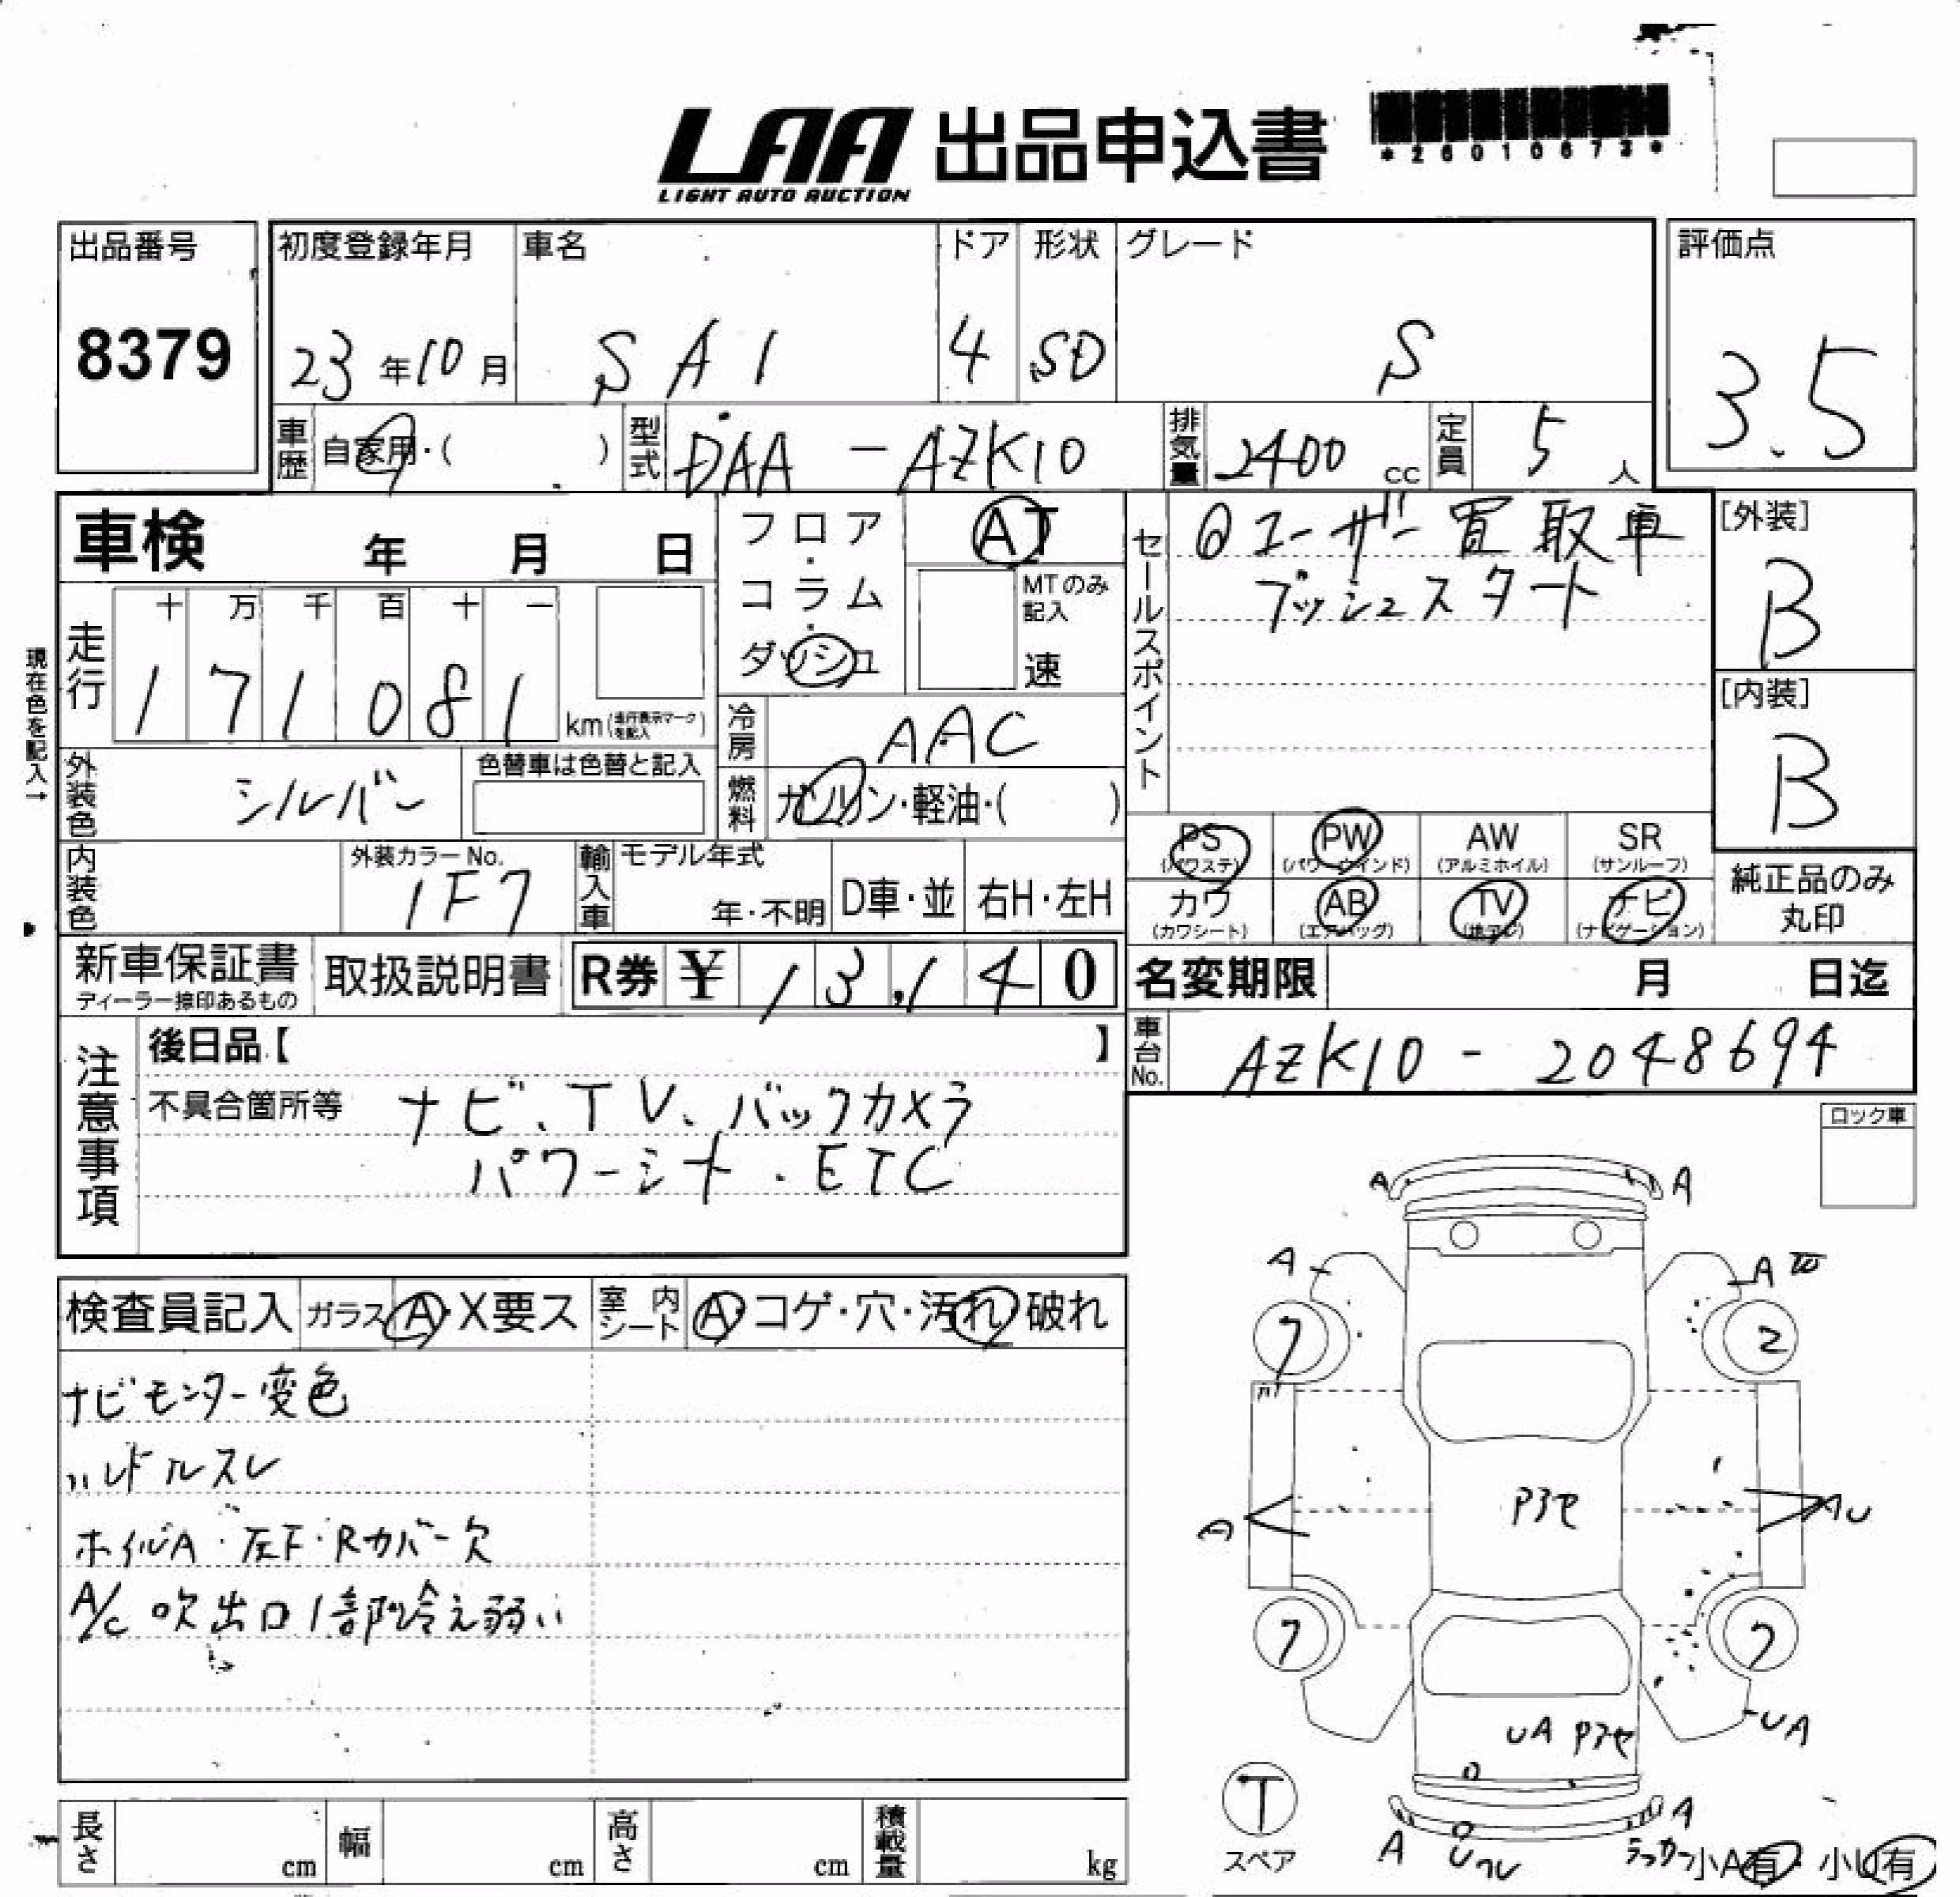 LAA 出品申込書
LIGHT AUTO AUCTION
*26010673*
出品番号 初度登録年月 車名 ドア 形状 グレード 評価点
8379 23年10月 SAI 4 SD S 3.5
車歴 自家用・( ) 型式 DAA-AZK10 排気量 2400cc 定員 5人
車検 年 月 日
フロア・コラム・ダッシュ AT
MTのみ記入 速
セールスポイント
◎ユーザー買取車
プッシュスタート
[外装]
B
[内装]
B
現在色を記入→
走行 十 万 千 百 十 一
171081 km(走行表示マークを記入)
冷房 AAC
外装色 シルバー 色替車は色替と記入
燃料 ガソリン・軽油・( )
PS (パワステ) PW (パワーウインド) AW (アルミホイル) SR (サンルーフ)
カワ (カワシート) AB (エアバッグ) TV ナビ (ナビゲーション)
純正品のみ
丸印
内装色 外装カラーNo. 1F7 輸入車 モデル年式 年・不明 D車・並 右H・左H
新車保証書 取扱説明書 R券 ¥13,140
ディーラー捺印あるもの
名変期限 月 日迄
車台No. AZK10-2048694
注意事項
後日品【 】
不具合箇所等 ナビ、TV、バックカメラ
パワーシート・ETC
ロック車
検査員記入 ガラス A・X要ス 室内シート A・コゲ・穴・汚れ・破れ
ナビモニター変色
ハンドルスレ
ホイルA・左F・Rカバー欠
A/C 吹出口1部冷え弱い
A A
A A
7 2
A AU
7 7
UA
UA
T
スペア
A A
小A有・小U有
長さ cm 幅 cm 高さ cm 積載量 kg